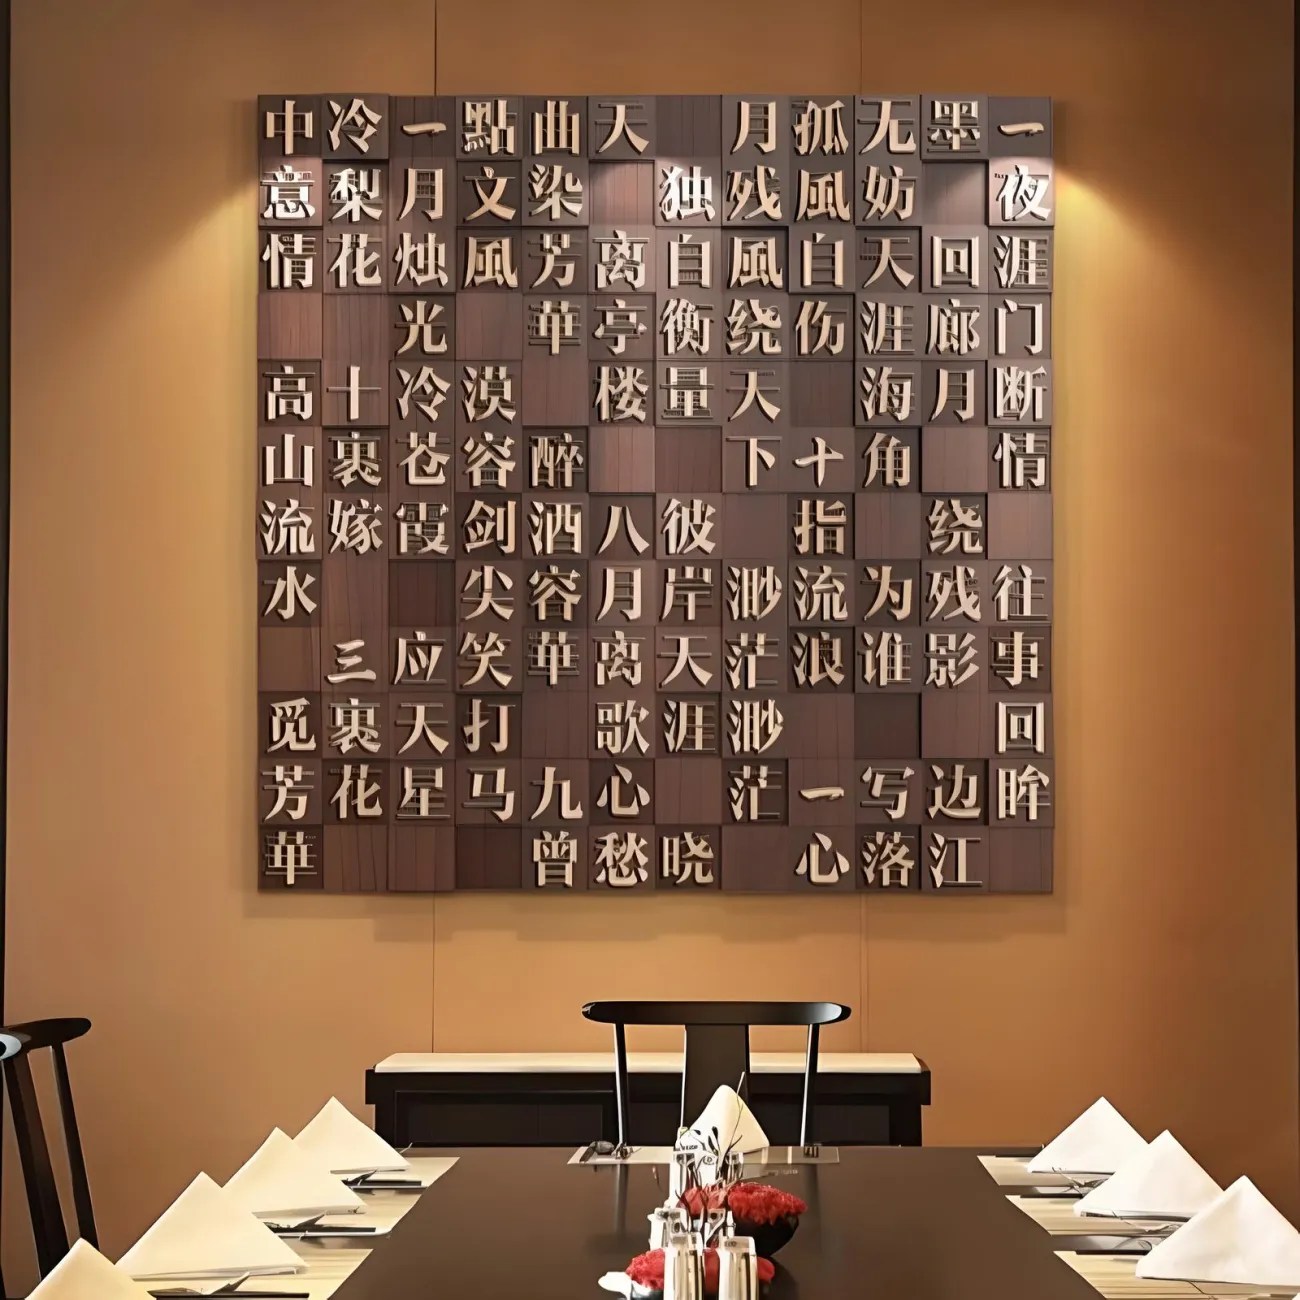 中意情 高山流水 觅芳華
冷梨花 十裹嫁 三裹花
一月烛光冷苍霞 应天星
點文風 漠容剑尖笑打马
曲染芳華 醉酒容華 九曾
天 离亭楼 八月离歌心愁
独自衡量 彼岸天涯 晓
月残風绕天下 渺茫渺茫
孤風自伤 十指流浪 一心
无妨天涯海角 为谁写落
墨 回廊月 绕残影 边江
一夜涯门断情 往事回眸